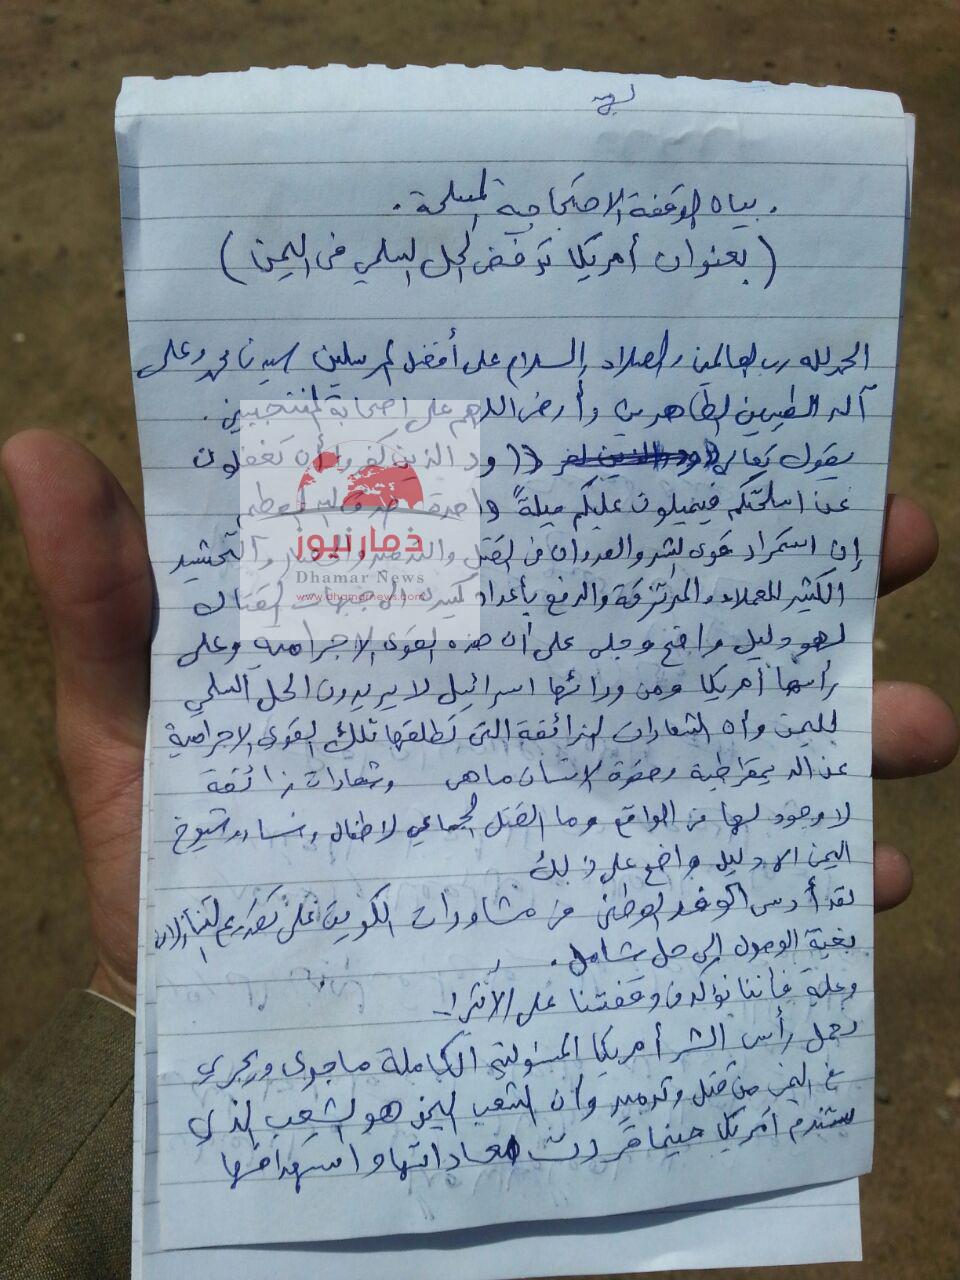 بيان الوقفة الاحتجاجية المسلحة.
(بعنوان أمريكا ترفض الحل السلمي في اليمن)
الحمد لله رب العالمين والصلاة والسلام على أفضل المرسلين سيدنا محمد وعلى
آله الطيبين الطاهرين وأرض اللهم على اصحابة المنتجبين.
يقول تعالى ((ود الذين كفروا أن تغفلون
عن اسلحتكم فيميلون عليكم ميلةً واحدة صدق الله العظيم
إن استمرار قوى الشر والعدوان في القتل والتدمير والحصار والتحشيد
الكثير للعملاء والمرتزقة والدفع بأعداد كبيرة إلى جبهات القتال
لهو دليل واضح وجلي على أن هذه القوى الاجرامية وعلى
رأسها أمريكا ومن ورائها اسرائيل لا يريدون الحل السلمي
لليمن وان الشعارات الزائفة التي تطلقها تلك القوى الاجرامية
عن الديمقراطية وحقوق الانسان ماهي وشعارات زائفة
لا وجود لها في الواقع وما القتل الجماعي لاطفال ونساء وشيوخ
اليمن الا دليل واضح على ذلك
لقد الوفد الوطني في مشاورات الكويت على تقديم التنازلات
بغية الوصول إلى حل شامل.
وعلية فإننا نؤكد في وقفتنا على الأتي:-
نحمل رأس الشر أمريكا المسؤلية الكاملة ماجرى ويجري
في اليمن من قتل وتدمير وأن الشعب اليمني هو الشعب الذي
ستندم أمريكا حينما قررت معاداتها واستهدافها
ذمار نيوز
Dhamar News
www.dhamarnews.com